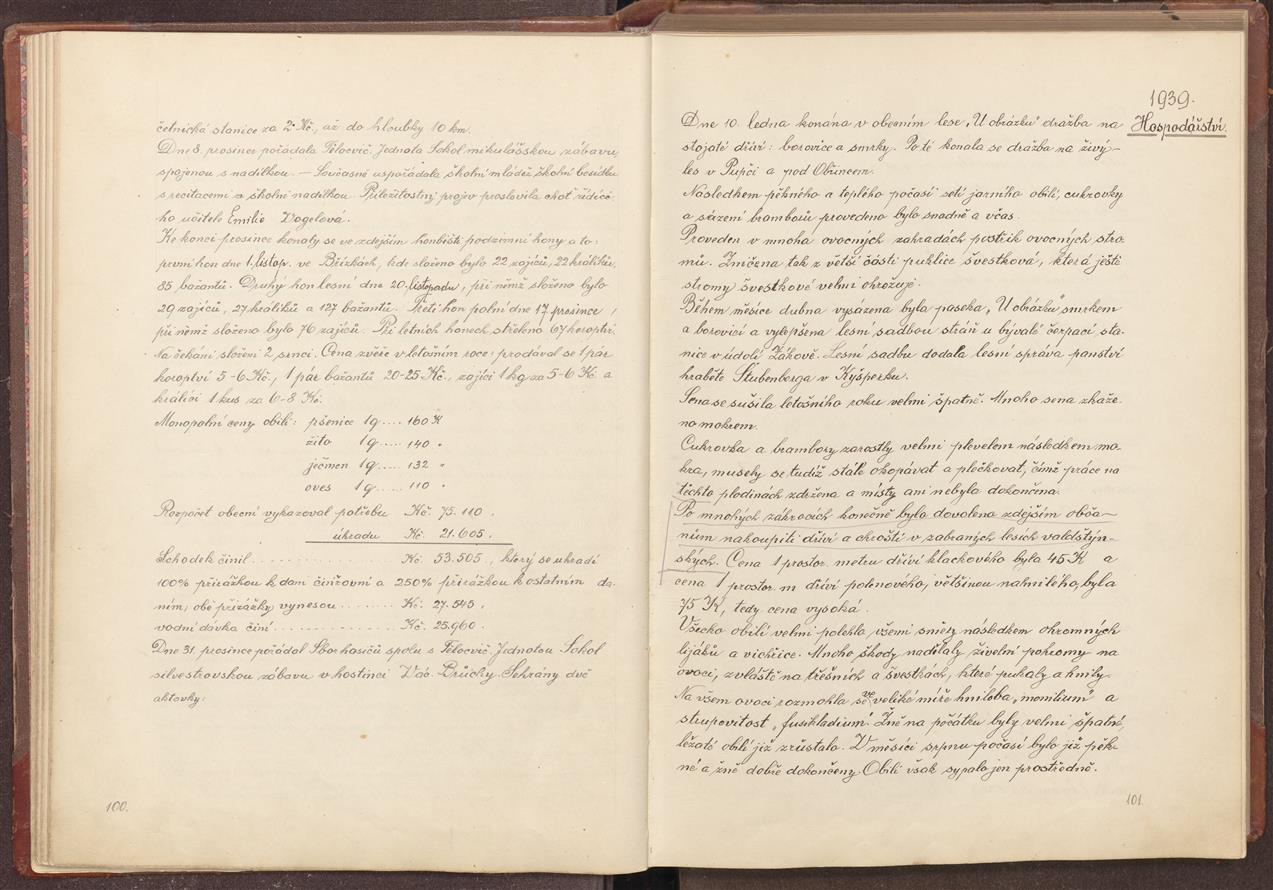 četnická stanice za 2 Kč, až do hloubky 10 km.
Dne 8 prosince pořádala Tělocvič. Jednota Sokol mikulášskou zábavu
spojenou s nadílkou. – Současně uspořádala školní mládež školní besídku
s recitacemi a školní nadílkou. Příležitostný projev proslovila choť řídící-
ho učitele Emilie Vogelová.
Ke konci prosince konaly se ve zdejším honbišti podzimní hony a to:
první hon dne 1. listop. ve Břízkách, kde složeno bylo 22 zajíců, 22 králíků,
85 bažantů. Druhý hon lesní dne 20. listopadu, při němž složeno bylo
29 zajíců, 27 králíků a 127 bažantů. Třetí hon polní dne 17. prosince,
při němž složeno bylo 76 zajíců. Při letních honech střeleno 67 koroptví.
Na čekání složeni 2 srnci. Cena zvěře v letošním roce: prodával se 1 pár
koroptví 5-6 Kč., 1 pár bažantů 20-25 Kč., zajíci 1 kg za 5-6 Kč a
králíci 1 kus za 6-8 Kč.
Monopolní ceny obilí: pšenice 1 q .... 160 K
žito 1 q .... 140 "
ječmen 1 q .... 132 "
oves 1 q .... 110 "
Rozpočet obecní vykazoval potřebu Kč. 75.110.
úhradu Kč. 21.605.
Schodek činil ............ Kč. 53.505, který se uhradí
100% přirážkou k dani činžovní a 250% přirážkou k ostatním da-
ním; obě přirážky vynesou ........ Kč. 27.545.
vodní dávka činí ................ Kč. 25.960.
Dne 31. prosince pořádal Sbor hasičů spolu s Tělocvič. Jednotou Sokol
silvestrovskou zábavu v hostinci Vác. Brůčky. Sehrány dvě
aktovky:
100.
1939.
Hospodářství.
Dne 10. ledna konána v obecním lese „U obrázku" dražba na
stojaté dříví: borovice a smrky. Poté konala se dražba na živý
les v Pupči a pod Obůncem.
Následkem pěkného a teplého počasí setí jarního obilí, cukrovky
a sázení bramborů provedeno bylo snadně a včas.
Proveden v mnoha ovocných zahradách postřik ovocných stro-
mů. Zničena tak z větší části puklice švestková, která ještě
stromy švestkové velmi ohrožuje.
Během měsíce dubna vysázena byla paseka „U obrázku" smrkem
a borovicí a vylepšena lesní sadbou stráň u bývalé čerpací sta-
nice v údolí Žákově. Lesní sadbu dodala lesní správa panství
hraběte Stubenberga v Kyšperku.
Sena se sušila letošního roku velmi špatně. Mnoho sena zkaže-
no mokrem.
Cukrovka a brambory zarostly velmi plevelem následkem mo-
kra, musely se tudíž stále okopávat a plečkovat, čímž práce na
těchto plodinách zdržena a místy ani nebyla dokončena.
Po mnohých zákrocích konečně byla dovolena zdejším obča-
nům nakoupiti dříví a chrostí v zabraných lesích valdštýn-
ských. Cena 1 prostor. metru dříví klackového byla 45 K a
cena 1 prostor. m dříví polenového, většinou nahnilého, byla
75 K, tedy cena vysoká.
Všecko obilí velmi polehlo všemi směry následkem ohromných
lijáků a vichřice. Mnoho škody nadělaly živelní pohromy na
ovoci, zvláště na třešních a švestkách, které pukaly a hnily.
Na všem ovoci rozmohla se ve veliké míře hniloba „monilium" a
strupovitost „fusikladium". Žně na počátku byly velmi špatné,
ležaté obilí již zrůstalo. V měsíci srpnu počasí bylo již pěk-
né a žně dobře dokončeny. Obilí však sypalo jen prostředně.
101.